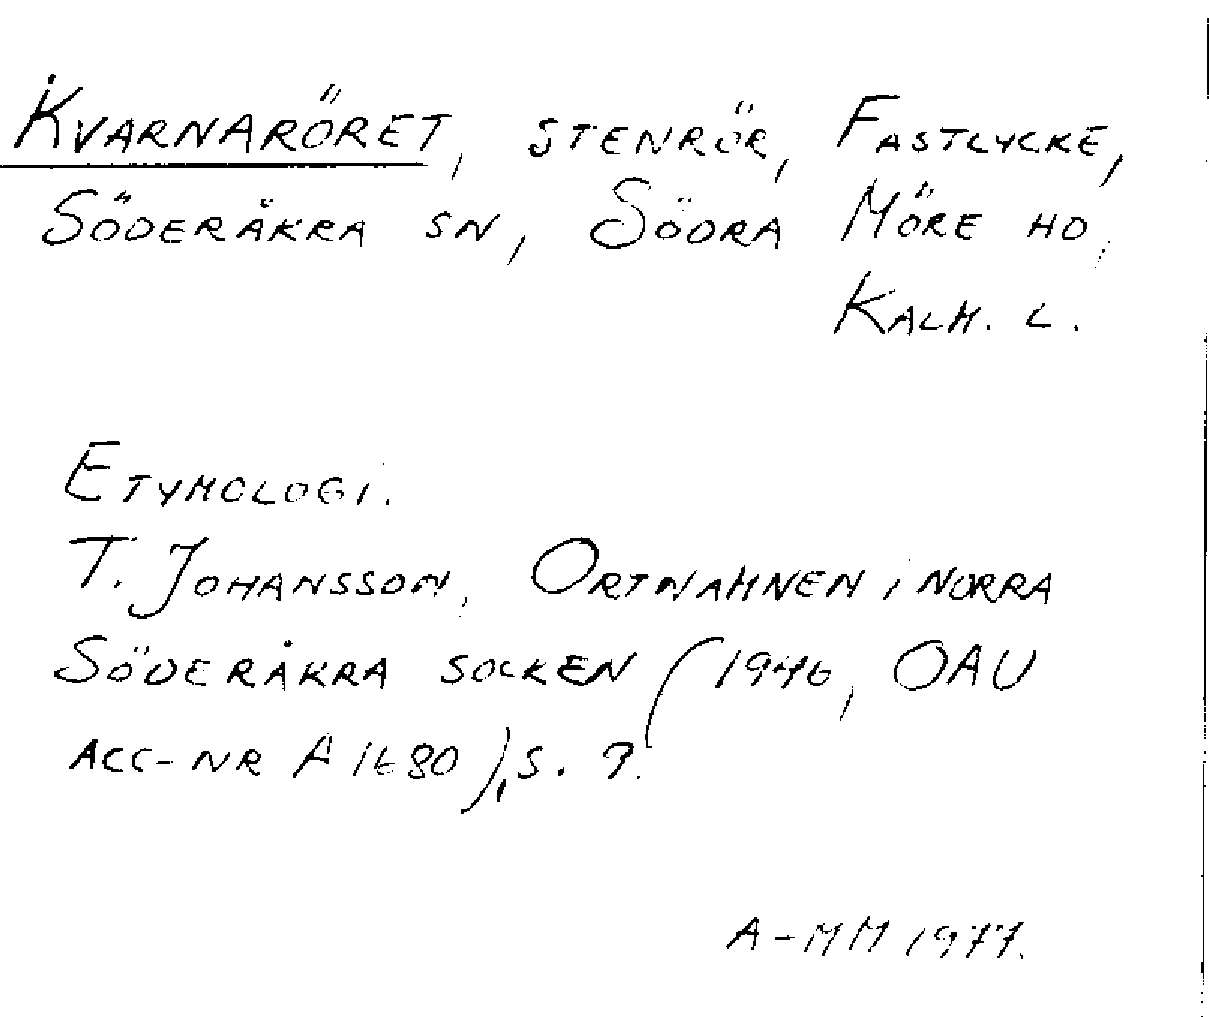 KVARNARÖRET, STENRÖR, FASTLYCKE,
SÖDERÅKRA SN, SÖDRA MÖRE HD,
KALM. L.
ETYMOLOGI.
T. JOHANSSON, ORTNAMNEN I NORRA
SÖDERÅKRA SOCKEN (1946, OAU
ACC-NR A 1680), S. 9.
A-MM 1977.